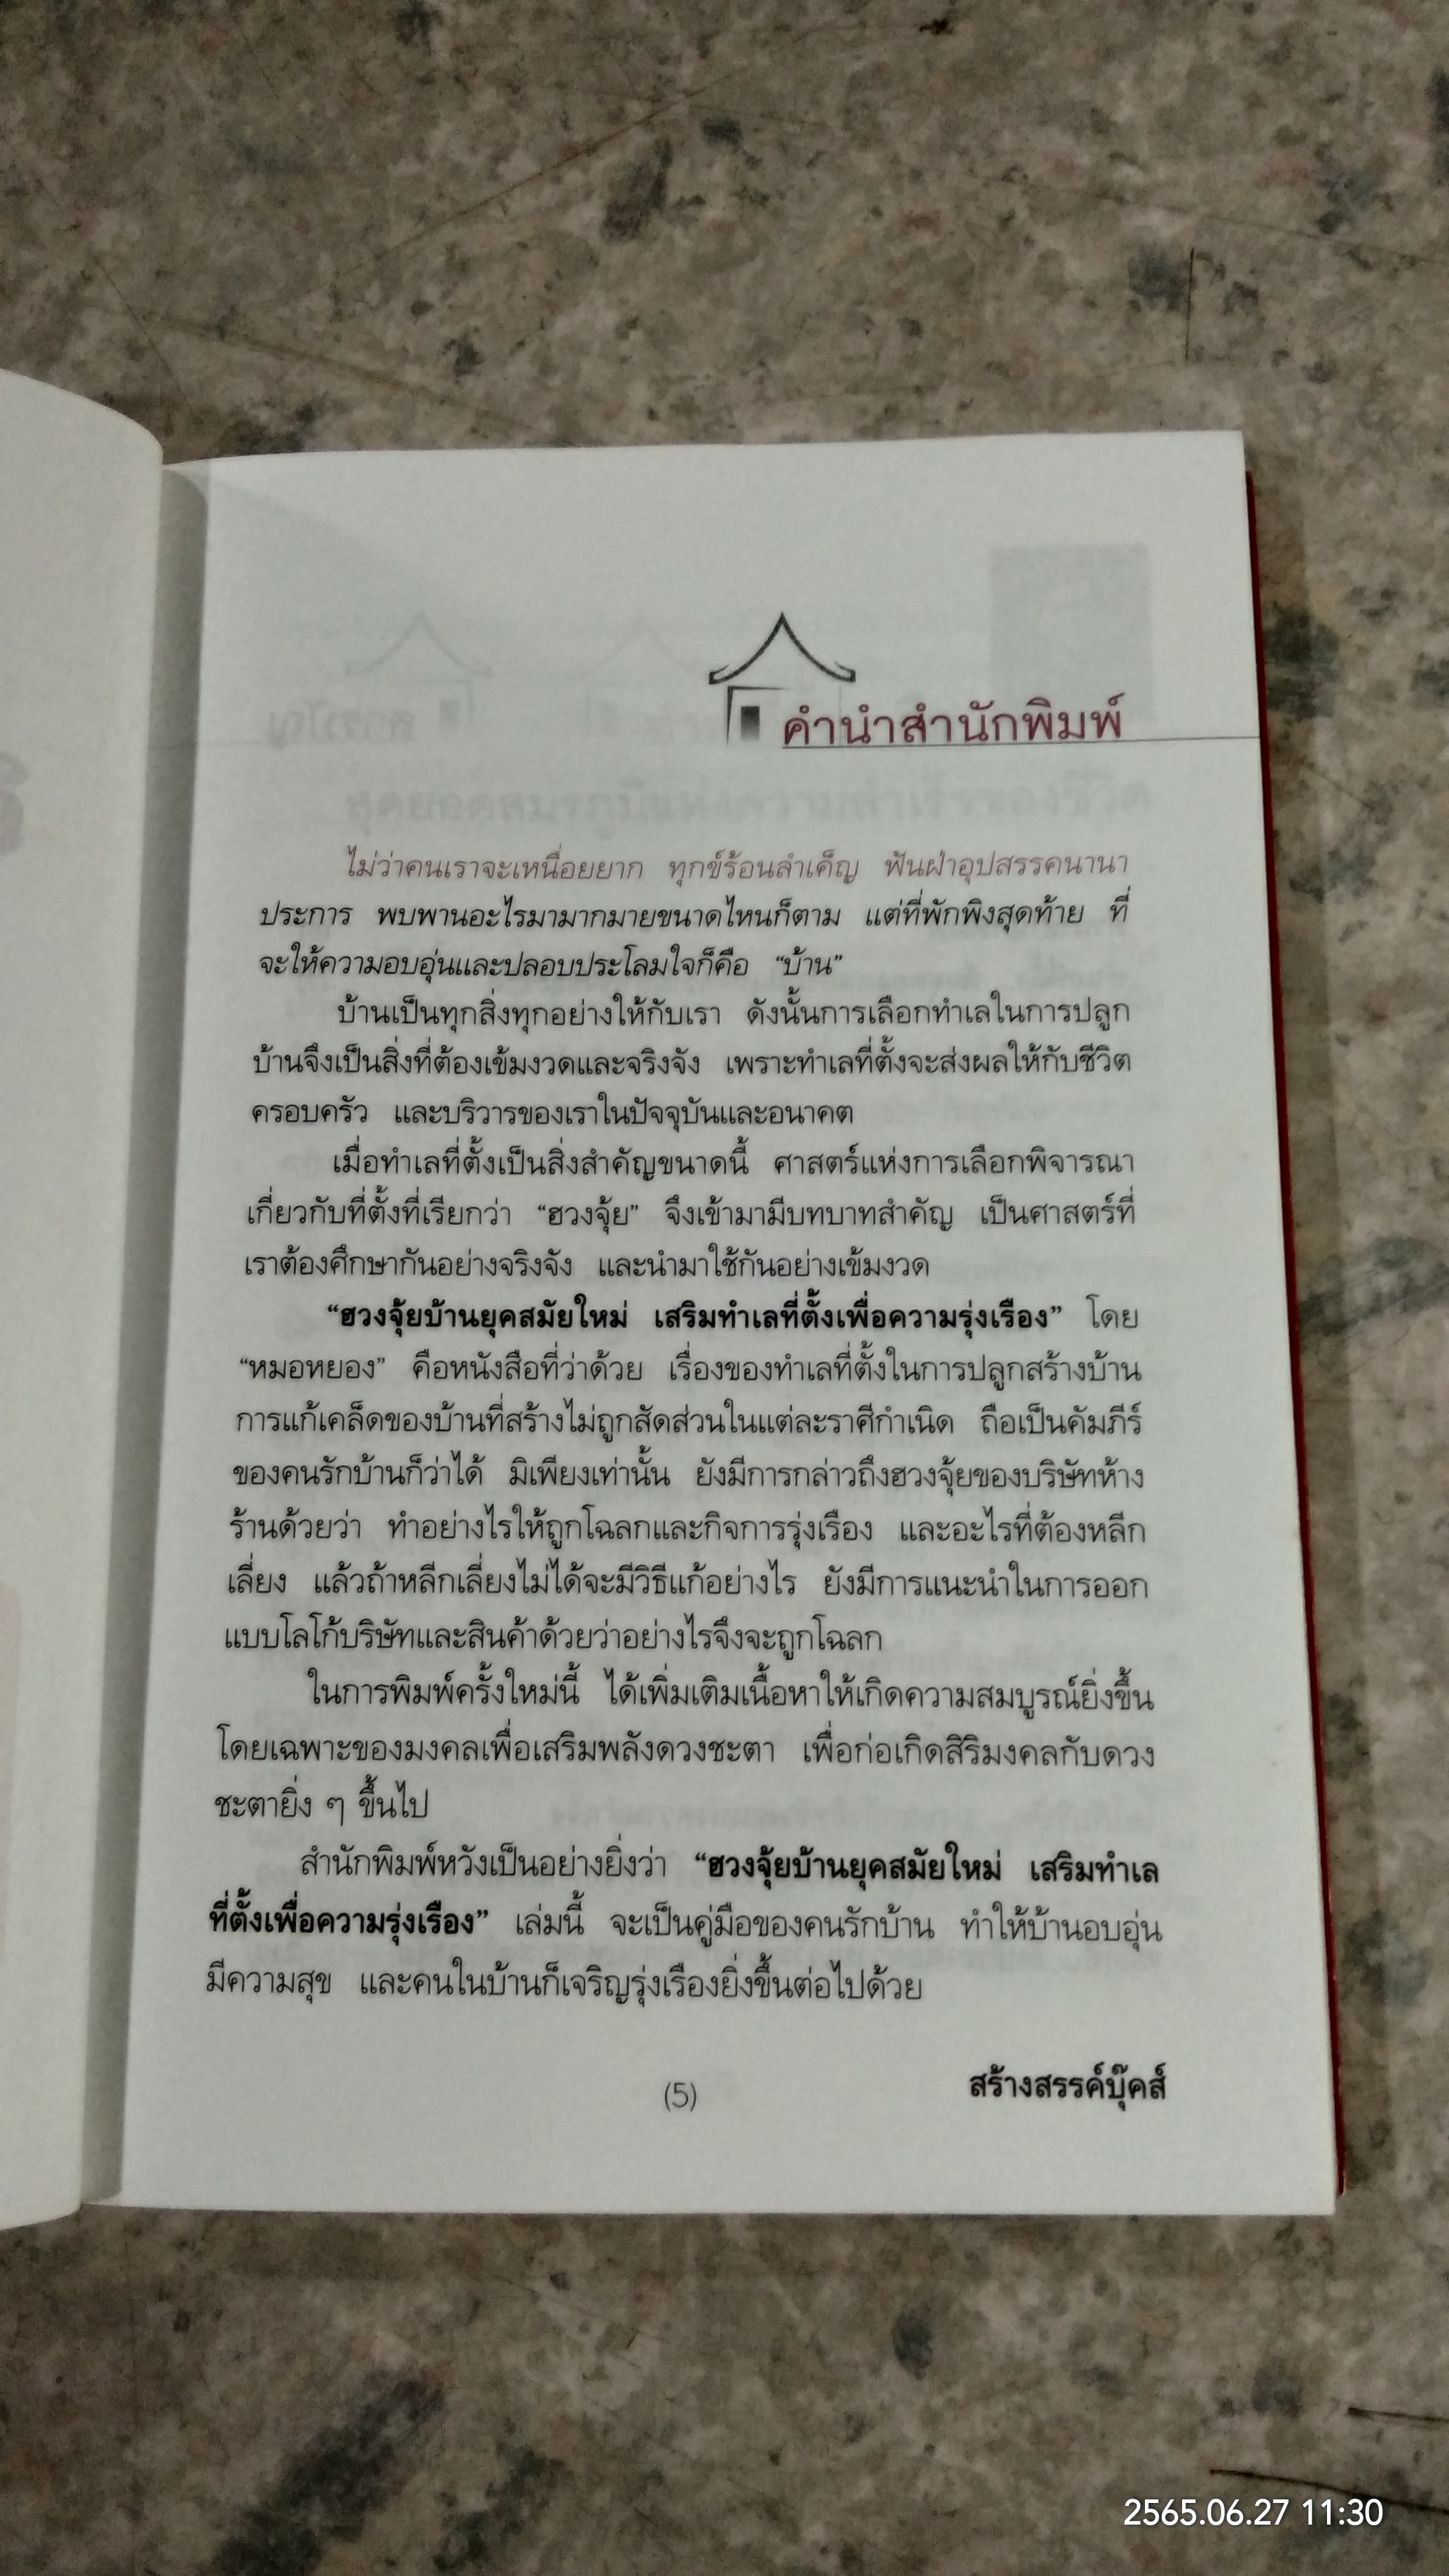 คำนำสำนักพิมพ์
ไม่ว่าคนเราจะเหนื่อยยาก ทุกข์ร้อนลำเค็ญ ฟันฝ่าอุปสรรคนานา
ประการ พบพานอะไรมามากมายขนาดไหนก็ตาม แต่ที่พักพิงสุดท้าย ที่
จะให้ความอบอุ่นและปลอบประโลมใจก็คือ “บ้าน”
บ้านเป็นทุกสิ่งทุกอย่างให้กับเรา ดังนั้นการเลือกทำเลในการปลูก
บ้านจึงเป็นสิ่งที่ต้องเข้มงวดและจริงจัง เพราะทำเลที่ตั้งจะส่งผลให้กับชีวิต
ครอบครัว และบริวารของเราในปัจจุบันและอนาคต
เมื่อทำเลที่ตั้งเป็นสิ่งสำคัญขนาดนี้ ศาสตร์แห่งการเลือกพิจารณา
เกี่ยวกับที่ตั้งที่เรียกว่า “ฮวงจุ้ย” จึงเข้ามามีบทบาทสำคัญ เป็นศาสตร์ที่
เราต้องศึกษากันอย่างจริงจัง และนำมาใช้กันอย่างเข้มงวด
“ฮวงจุ้ยบ้านยุคสมัยใหม่ เสริมทำเลที่ตั้งเพื่อความรุ่งเรือง” โดย
“หมอหยอง” คือหนังสือที่ว่าด้วย เรื่องของทำเลที่ตั้งในการปลูกสร้างบ้าน
การแก้เคล็ดของบ้านที่สร้างไม่ถูกสัดส่วนในแต่ละราศีกำเนิด ถือเป็นคัมภีร์
ของคนรักบ้านก็ว่าได้ มิเพียงเท่านั้น ยังมีการกล่าวถึงฮวงจุ้ยของบริษัทห้าง
ร้านด้วยว่า ทำอย่างไรให้ถูกโฉลกและกิจการรุ่งเรือง และอะไรที่ต้องหลีก
เลี่ยง แล้วถ้าหลีกเลี่ยงไม่ได้จะมีวิธีแก้อย่างไร ยังมีการแนะนำในการออก
แบบโลโก้บริษัทและสินค้าด้วยว่าอย่างไรจึงจะถูกโฉลก
ในการพิมพ์ครั้งใหม่นี้ ได้เพิ่มเติมเนื้อหาให้เกิดความสมบูรณ์ยิ่งขึ้น
โดยเฉพาะของมงคลเพื่อเสริมพลังดวงชะตา เพื่อก่อเกิดสิริมงคลกับดวง
ชะตายิ่ง ๆ ขึ้นไป
สำนักพิมพ์หวังเป็นอย่างยิ่งว่า “ฮวงจุ้ยบ้านยุคสมัยใหม่ เสริมทำเล
ที่ตั้งเพื่อความรุ่งเรือง” เล่มนี้ จะเป็นคู่มือของคนรักบ้าน ทำให้บ้านอบอุ่น
มีความสุข และคนในบ้านก็เจริญรุ่งเรืองยิ่งขึ้นต่อไปด้วย
สร้างสรรค์บุ๊คส์
(5)
2565.06.27 11:30